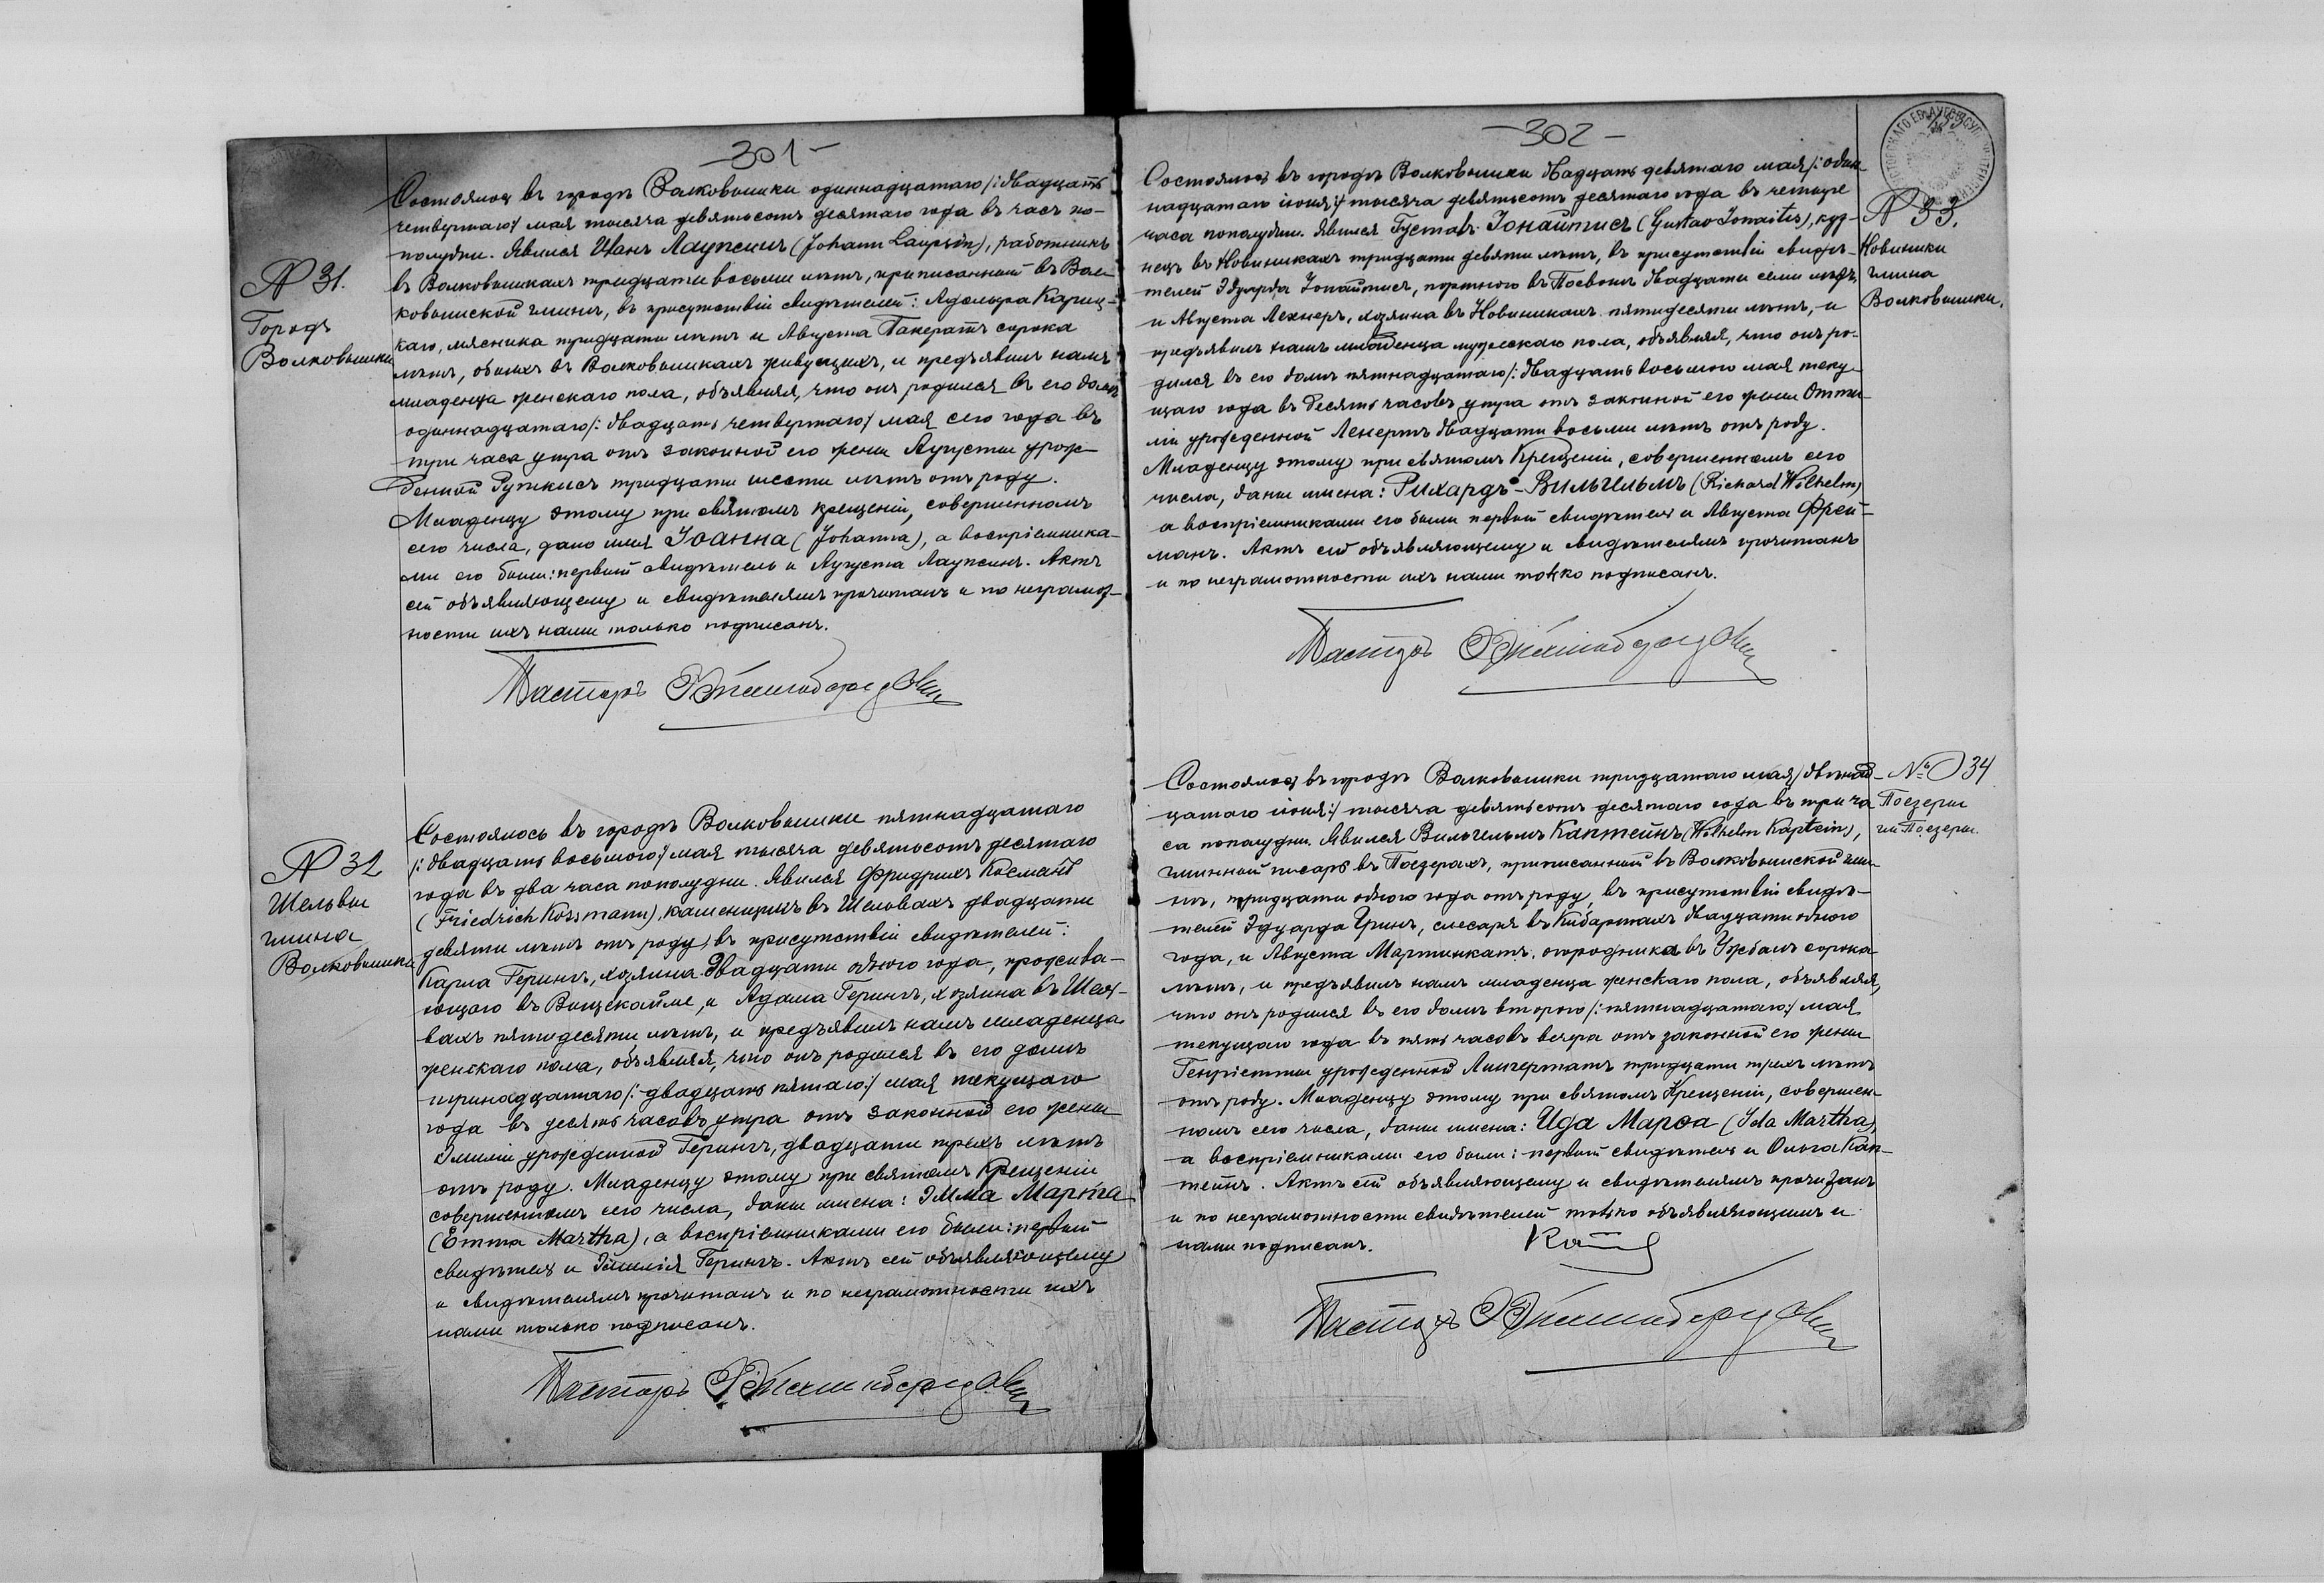 -301-
№ 31.
Городъ
Волковышки
Состоялось въ городѣ Волковышки одиннадцатаго /: двадцать
четвертаго :/ мая тысяча девятьсотъ десятаго года въ часъ по-
полудни. Явился Иванъ Лаупсинъ (Johann Laupsin), работникъ
въ Волковышкахъ тридцати восьми лѣтъ, приписанный въ Вол-
ковышской гминѣ, въ присутствіи свидѣтелей: Адольфа
каго, мясника тридцати лѣтъ и Августа Пакератъ сорока
лѣтъ, обоихъ въ Волковышкахъ живущихъ, и предъявилъ намъ
младенца женскаго пола, объявляя, что онъ родился въ его домѣ
одиннадцатаго /: двадцать четвертаго :/ мая сего года въ
три часа утра отъ законной его жены Августы урож-
денной тридцати шести лѣтъ отъ роду.
Младенцу этому при святомъ крещеніи, совершенномъ
сего числа, дано имя Іоанна (Johanna), а воспріемника-
ми его были: первый свидѣтель и Августа Лаупсинъ. Актъ
сей объявляющему и свидѣтелямъ прочитанъ и по неграмот-
ности ихъ нами только подписанъ.
Пасторъ
№ 32
Шельвы
гмина
Волковышки
Состоялось въ городѣ Волковышки пятнадцатаго
/: двадцать восьмого :/ мая тысяча девятьсотъ десятаго
года въ два часа пополудни. Явился Фридрихъ Косманъ
(Friedrich Kossmann), каменщикъ въ Шельвахъ двадцати
девяти лѣтъ отъ роду, въ присутствіи свидѣтелей:
Карла Герингъ, хозяина двадцати одного года, прожива-
ющаго въ и Адама Герингъ, хозяина въ Шель-
вахъ пятидесяти лѣтъ, и предъявилъ намъ младенца
женскаго пола, объявляя, что онъ родился въ его домѣ
тринадцатаго /: двадцать пятаго :/ мая текущаго
года въ десять часовъ утра отъ законной его жены
Эмиліи урожденной Герингъ, двадцати трехъ лѣтъ
отъ роду. Младенцу этому при святомъ Крещеніи
совершенномъ сего числа, даны имена: Эмма Марта
(Emma Martha), а воспріемниками его были: первый
свидѣтель и Эмилія Герингъ. Актъ сей объявляющему
и свидѣтелямъ прочитанъ и по неграмотности ихъ
нами только подписанъ.
Пасторъ
-302-
№ 33.
Новиники
гмина
Волковышки.
Состоялось въ городѣ Волковышки двадцать девятаго мая /: один-
надцатаго іюня :/ тысяча девятьсотъ десятаго года въ четыре
часа пополудни. Явился Густавъ Іонайтисъ (Gustav Jonaitis), куз-
нецъ въ Новиникахъ тридцати девяти лѣтъ, въ присутствіи свидѣ-
телей Эдуарда Іонайтисъ, портного въ двадцати семи лѣтъ,
и Августа Лехнеръ, хозяина въ Новиникахъ пятидесяти лѣтъ, и
предъявилъ намъ младенца мужескаго пола, объявляя, что онъ ро-
дился въ его домѣ пятнадцатаго /: двадцать восьмого мая теку-
щаго года въ десять часовъ утра отъ законной его жены Отти-
ліи урожденной Ленертъ двадцати восьми лѣтъ отъ роду.
Младенцу этому при святомъ Крещеніи, совершенномъ сего
числа, даны имена: Рихардъ-Вильгельмъ (Richard Wilhelm)
а воспріемниками его были первый свидѣтель и Августа Фрей-
манъ. Актъ сей объявляющему и свидѣтелямъ прочитанъ
и по неграмотности ихъ нами только подписанъ.
Пасторъ
№ 34
Поезеры
гм. Поезеры.
Состоялось въ городѣ Волковышки тридцатаго мая /: двѣнад-
цатаго іюня :/ тысяча девятьсотъ десятаго года въ три ча-
са пополудни. Явился Вильгельмъ Каптейнъ (Wilhelm Kaptein),
гминный писарь въ Поезерахъ, приписанный въ Волковышской гми-
нѣ, тридцати одного года отъ роду, въ присутствіи свидѣ-
телей Эдуарда Гринъ, слесаря въ Кибартахъ двадцати одного
года, и Августа Мартинкатъ, огородника въ сорока
лѣтъ, и предъявилъ намъ младенца женскаго пола, объявляя,
что онъ родился въ его домѣ второго /: пятнадцатаго :/ мая
текущаго года въ пять часовъ вечера отъ законной его жены
Генріетты урожденной тридцати трехъ лѣтъ
отъ роду. Младенцу этому при святомъ Крещеніи, совершен-
номъ сего числа, даны имена: Ида Марѳа (Ida Martha),
а воспріемниками его были: первый свидѣтель и Ольга Кап-
тейнъ. Актъ сей объявляющему и свидѣтелямъ прочитанъ
и по неграмотности свидѣтелей только объявляющимъ и
нами подписанъ.
Пасторъ